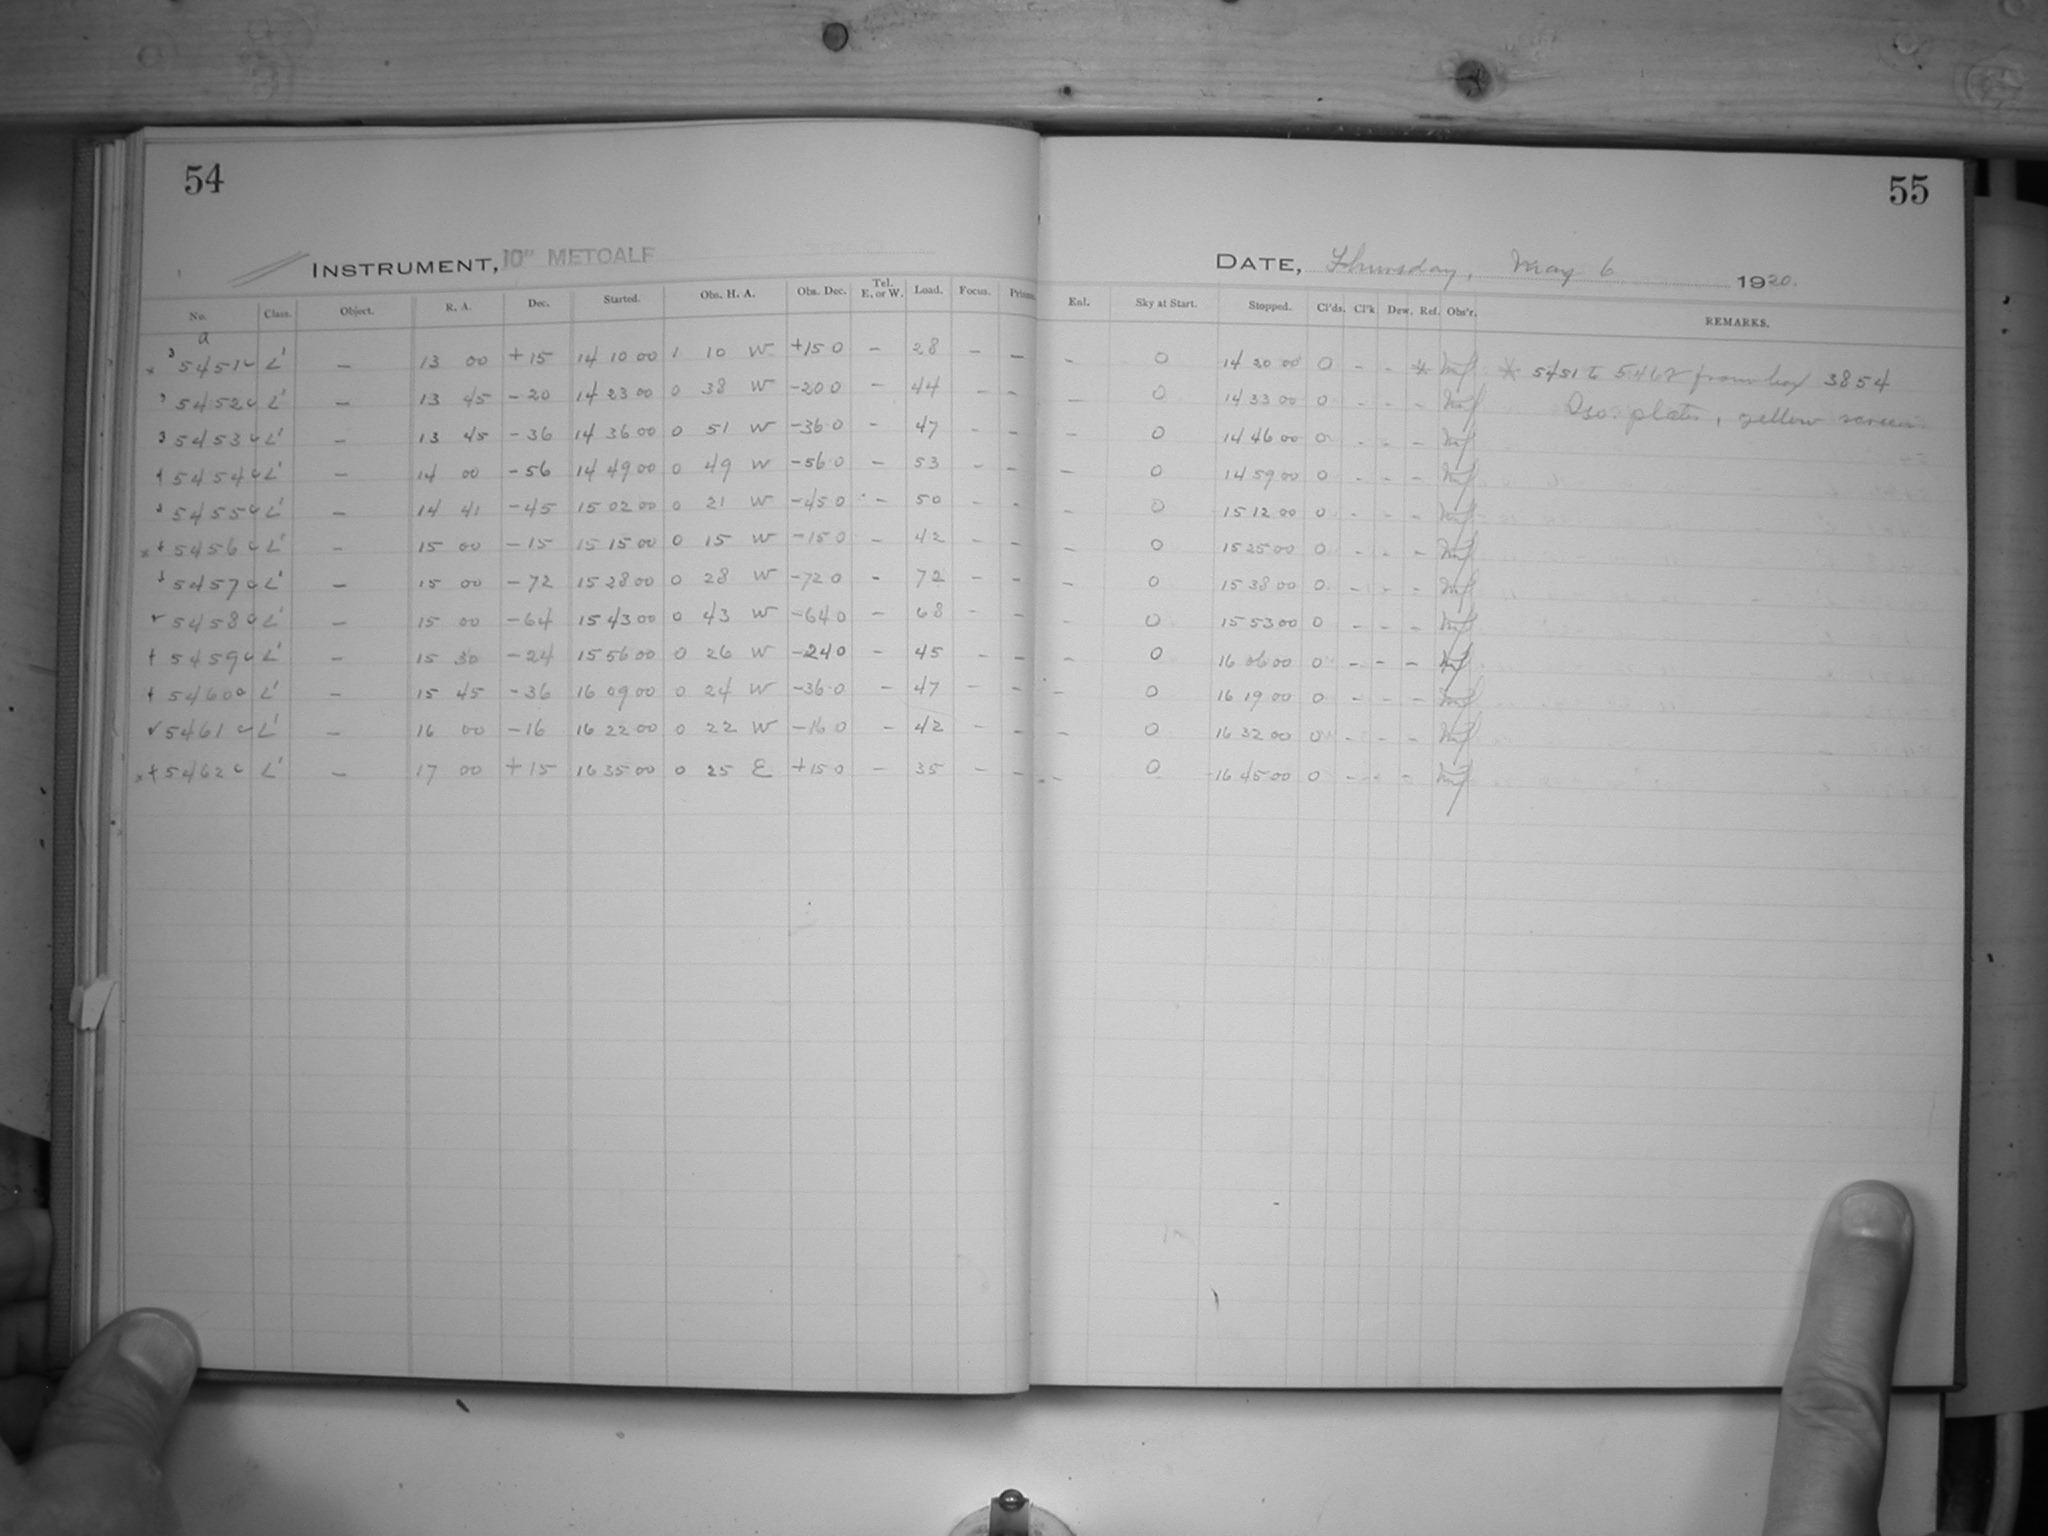 54
55
INSTRUMENT, 10" METCALF
DATE, Thursday, May 6 1920.
No. Class. Object. R. A. Dec. Started. Obs. H. A. Obs. Dec. Tel. E. or W. Load. Focus. Prisms. Enl. Sky at Start. Stopped. Cl'ds. Cl'k Dew. Ref. Obs'r. REMARKS.
a
5451 L' — 13 00 +15 14 10 00 1 10 W +15 0 — 28 — — — 0 14 20 00 0 - - * * 5451 to 5462 from box 3854
5452 L' — 13 45 -20 14 23 00 0 38 W -20 0 — 44 — — — 0 14 33 00 0 - - - Iso. plates, yellow screen.
5453 L' — 13 45 -36 14 36 00 0 51 W -36 0 — 47 — — — 0 14 46 00 0 - - -
5454 L' — 14 00 -56 14 49 00 0 49 W -56 0 — 53 — — — 0 14 59 00 0 - - -
5455 L' — 14 41 -45 15 02 00 0 21 W -45 0 — 50 — — — 0 15 12 00 0 - - -
5456 L' — 15 00 -15 15 15 00 0 15 W -15 0 — 42 — — — 0 15 25 00 0 - - -
5457 L' — 15 00 -72 15 28 00 0 28 W -72 0 — 72 — — — 0 15 38 00 0 - - -
5458 L' — 15 00 -64 15 43 00 0 43 W -64 0 — 68 — — — 0 15 53 00 0 - - -
5459 L' — 15 30 -24 15 56 00 0 26 W -24 0 — 45 — — — 0 16 06 00 0 - - -
5460 L' — 15 45 -36 16 09 00 0 24 W -36 0 — 47 — — — 0 16 19 00 0 - - -
5461 L' — 16 00 -16 16 22 00 0 22 W -16 0 — 42 — — — 0 16 32 00 0 - - -
5462 L' — 17 00 +15 16 35 00 0 25 E +15 0 — 35 — — — 0 16 45 00 0 - - -